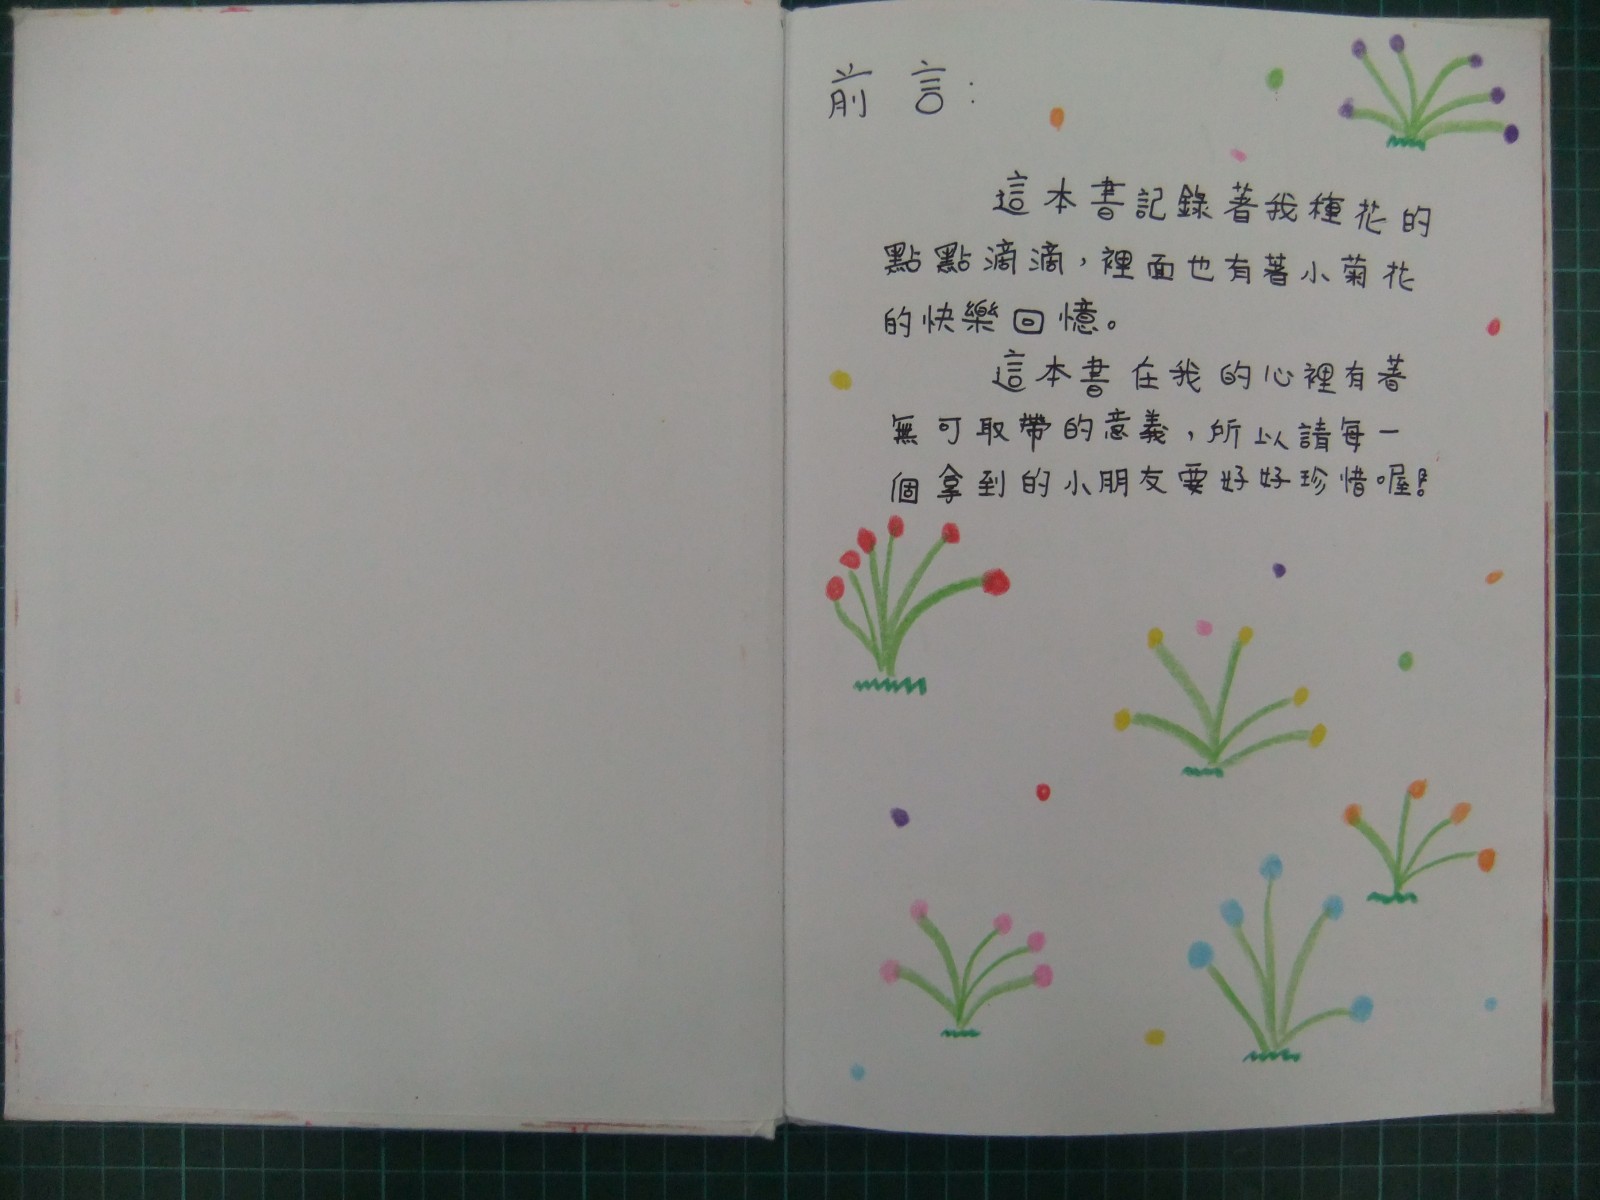 前言:
這本書記錄著我種花的
點點滴滴,裡面也有著小菊花
的快樂回憶。
這本書在我的心裡有著
無可取帶的意義,所以請每一
個拿到的小朋友要好好珍惜喔!